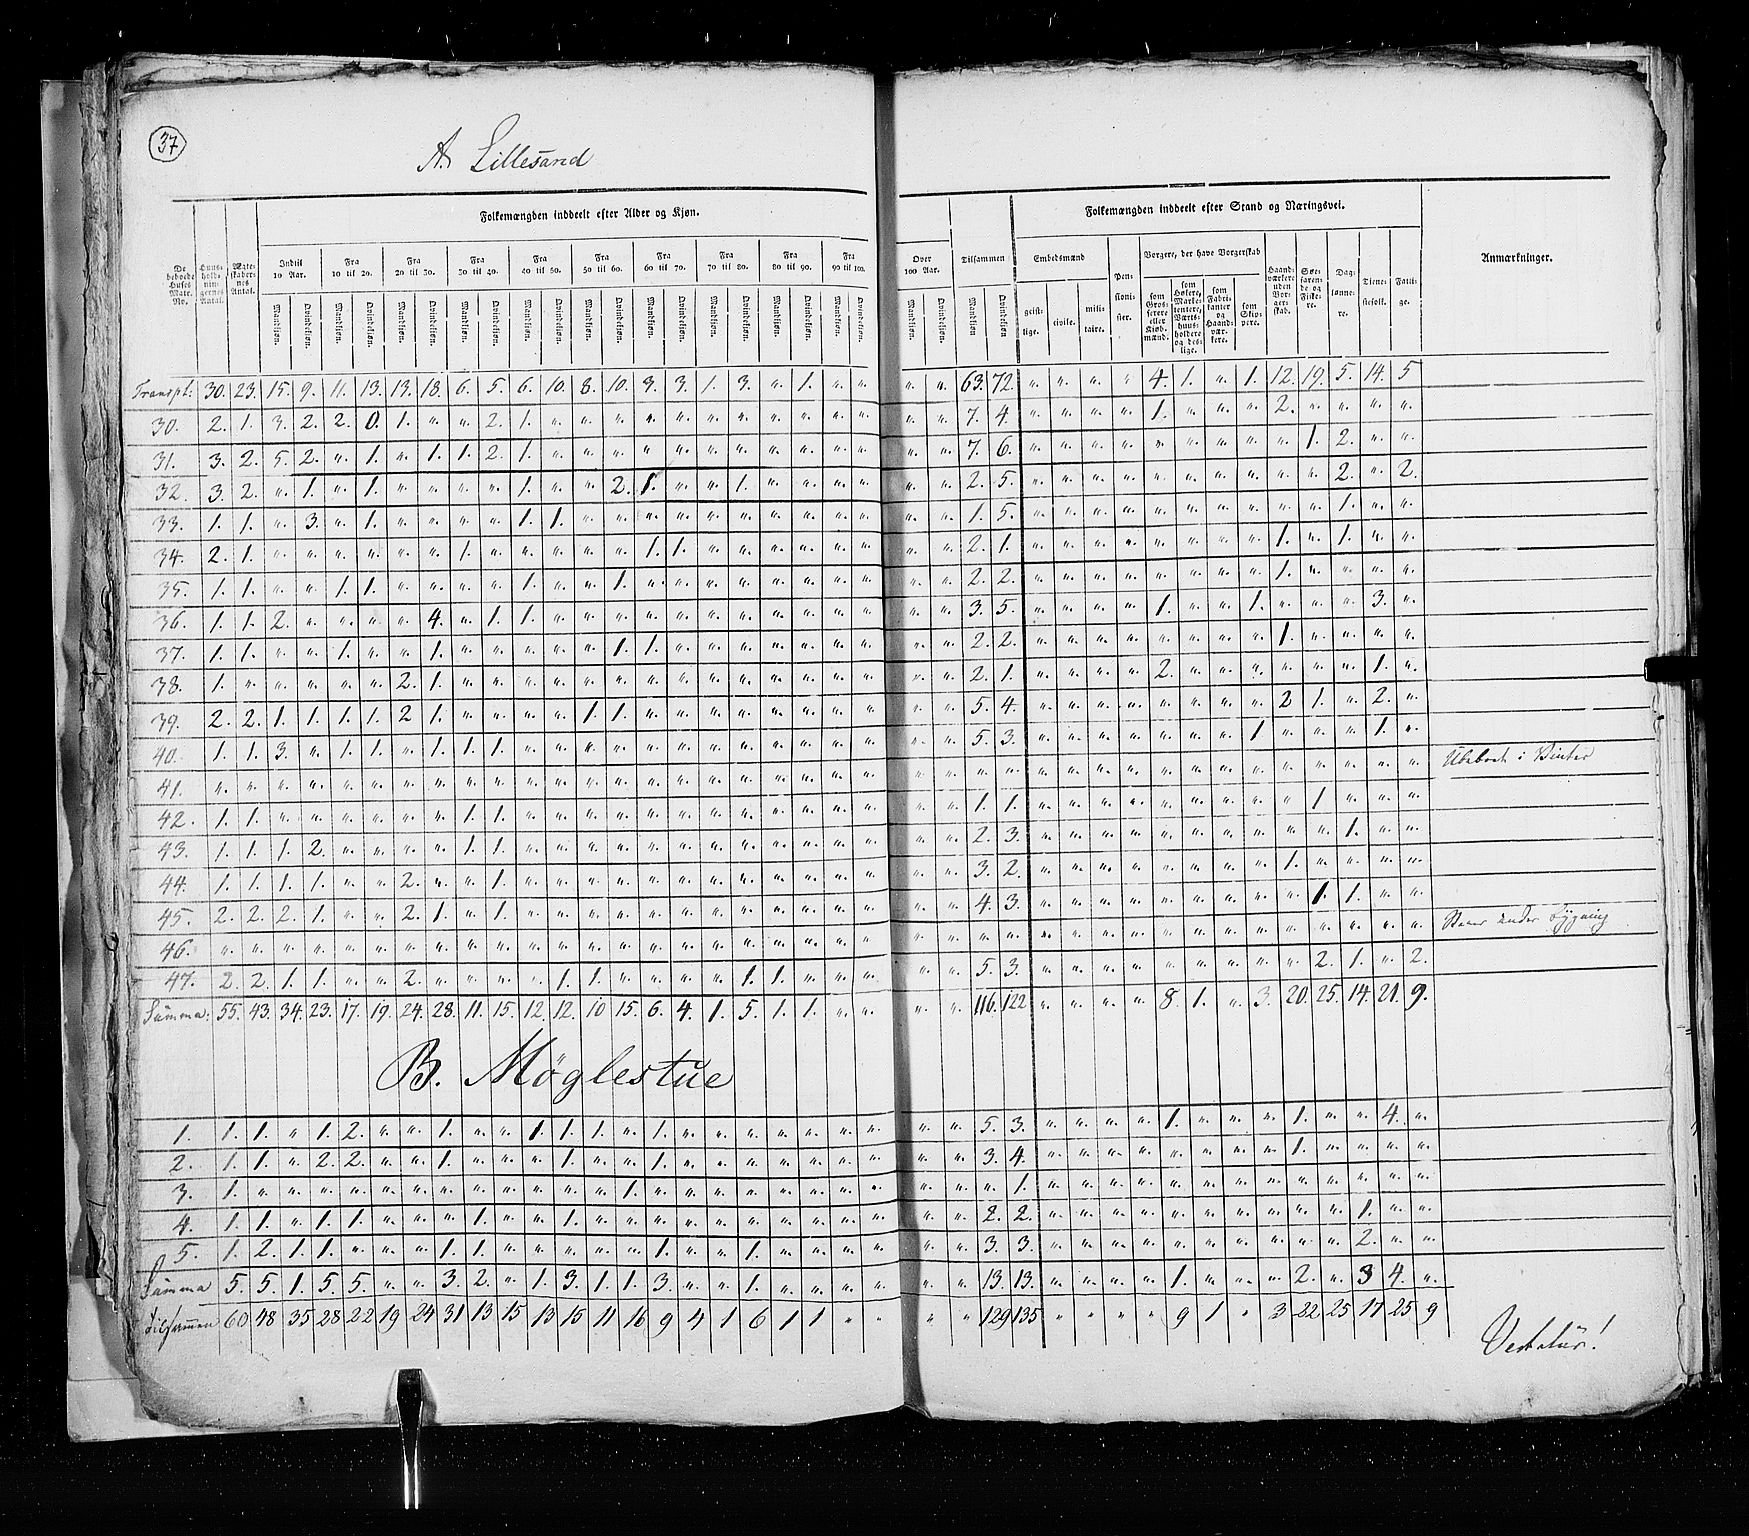 37
A. Lillesand
Folkemængden inddeelt efter Alder og Kjøn.
Folkemængden inddeelt efter Stand og Næringsvei.
Indtil 10 Aar. Fra 10 til 20. Fra 20 til 30. Fra 30 til 40. Fra 40 til 50. Fra 50 til 60. Fra 60 til 70. Fra 70 til 80. Fra 80 til 90. Fra 90 til 100. Over 100 Aar. Tilsammen Embedsmænd Borgere, der have Borgerskab Anmærkninger.
De beboede Huses Matr. No. Huusholdningernes Antal. Ægteskabernes Antal. Mandkjøn. Qvindekjøn. Mandkjøn. Qvindekjøn. Mandkjøn. Qvindekjøn. Mandkjøn. Qvindekjøn. Mandkjøn. Qvindekjøn. Mandkjøn. Qvindekjøn. Mandkjøn. Qvindekjøn. Mandkjøn. Qvindekjøn. Mandkjøn. Qvindekjøn. Mandkjøn. Qvindekjøn. Mandkjøn. Qvindekjøn. Mandkjøn Qvindekjøn geistlige. civile. militaire. Pensionister. som Grosserere eller Kjøbmænd. som Høkere, Marketentere, Værtshuusholdere og deslige. som Fabrikanter og Haandværkere. som Skippere. Haandværkere uden Borgerskab. Søefarende og Fiskere. Dagslønnere. Tienestefolk. Fattige.
Transpt: 30. 23. 15. 9. 11. 13. 13. 18. 6. 5. 6. 10. 8. 10. 3. 3. 1. 3. " 1. " " " " 63. 72. " " " " 4. 1. " 1. 12. 19. 5. 14. 5
30. 2. 1. 3. 2. 2. 0. 1. " " 2. 1. " " " " " " " " " " " " " 7. 4. " " " " 1. " " " 2. " " " "
31. 3. 2. 5. 2. " 1. " 1. 1. 2. 1. " " " " " " " " " " " " " 7. 6. " " " " " " " " " 1. 2. " "
32. 3. 2. " 1. " 1. " " " " 1. " " 2. 1. " " 1. " " " " " " 2. 5. " " " " " " " " " " 2. " 2.
33. 1. 1. " 3. " 1. " " " " 1. 1. " " " " " " " " " " " " 1. 5. " " " " " " " " " " 1. " "
34. 2. 1. " " " " " " 1. " " " " " 1. 1. " " " " " " " " 2. 1. " " " " " " " " 1. " 1. " "
35. 1. 1. " " 1. 1. " " " " 1. " " 1. " " " " " " " " " " 2. 2. " " " " " " " " 1. " " " "
36. 1. 1. 2. " " " " 4. " 1. 1. " " " " " " " " " " " " " 3. 5. " " " " 1. " " 1. " " " 3. "
37. 1. 1. " " 1. " " 1. " " " " " 1. 1. " " " " " " " " " 2. 2. " " " " " " " " 1. " " " "
38. 1. " " " " " 2. 1. " " " " " " " " " " " " " " " " 2. 1. " " " " 2. " " " " " " 1. "
39. 2. 2. 1. 1. 1. 1. 2 1. " " " " 1. 1. " " " " " " " " " " 5. 4. " " " " " " " " 2 1. " 2. "
40. 1. 1. 3. " 1. 1. " 1. 1. 1. " " " " " " " " " " " " " " 5. 3. " " " " " " " 1. " " " 1. "
41. " " " " " " " " " " " " " " " " " " " " " " " " " " " " " " " " " " " " " " " Ubeboet i Vinter
42. 1. 1. " " " " " " 1. 1. " " " " " " " " " " " " " " 1. 1. " " " " " " " " " 1 " " "
43. 1. 1. 1. 2. " " " " 1. 1. " " " " " " " " " " " " " " 2. 3. " " " " " " " " " " 1. " "
44. 1. 1. 1. 1. " " 2. " " 1. " " " " " " " " " " " " " " 3. 2. " " " " " " " " 1. " " " "
45. 2. 2. 2. 1. " " 2. 1. " 1. " " " " " " " " " " " " " " 4. 3. " " " " " " " " " 1. 1. " "
46. " " " " " " " " " " " " " " " " " " " " " " " " " " " " " " " " " " " " " " " under Bygning
47. 2. 2. 1. 1. " " 2. " " " " 1. 1. " " " " 1. 1. " " " " " 5. 3. " " " " " " " " " 2. 1. " 2.
Summa: 55. 43. 34. 23. 17. 19. 24. 28. 11. 15. 12. 12. 10 15. 6. 4. 1. 5. 1. 1. " " " " 116. 122 " " " " 8. 1. " 3. 20. 25. 14. 21. 9.
B. Møglestue
1. 1. 1. " 1. 2. " " 1. " " 1. 1. 1. " 1. " " " " " " " " " 5. 3. " " " " 1. " " " 1. " " 4. "
2. 1. 1. " 2. 2. " " 1. " " " 1. " " 1. " " " " " " " " " 3. 4. " " " " " " " " 1. " " " "
3. 1. " " " " " " " " " " " " 1. " " " " " " " " " " " 1. " " " " " " " " " " " " "
4. 1. 1. " 1. 1. " " " 1. " " 1. " " " " " " " " " " " " 2. 2. " " " " " " " " " " 1. " "
5. 1. 2. 1. 1. " " " 1. 1. " " " " " 1. " " 1. " " " " " " 3. 3. " " " " " " " " " " 2. " "
Summa 5. 5. 1. 5. 5. " " 3. 2. " 1. 3. 1. 1. 3. " " 1. " " " " " " 13. 13. " " " " 1. " " " 2. " 3 4. "
Tilsammen 60 48 35 28 22 19 24 31 13 15 13 15 11 16 9 4 1 6 1 1 " " " " 129 135 " " " " 9 1 " 3 22 25 17 25 9